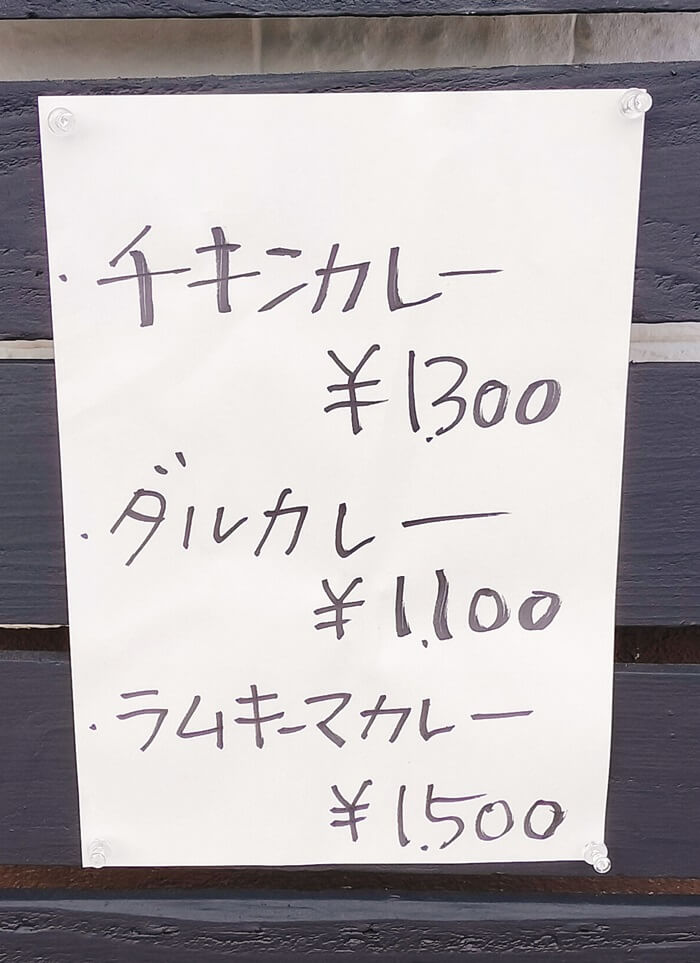 ・チキンカレー
¥1,300
・ダルカレー
¥1,100
・ラムキーマカレー
¥1,500